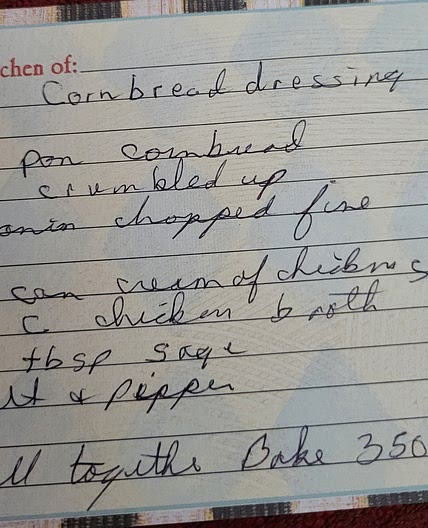 chen of:
Cornbread dressing
pan cornbread
crumbled up
onin chopped fine
can cream of chickn s
c chicken broth
tbsp sage
lt & pepper
ll togethe Bake 350